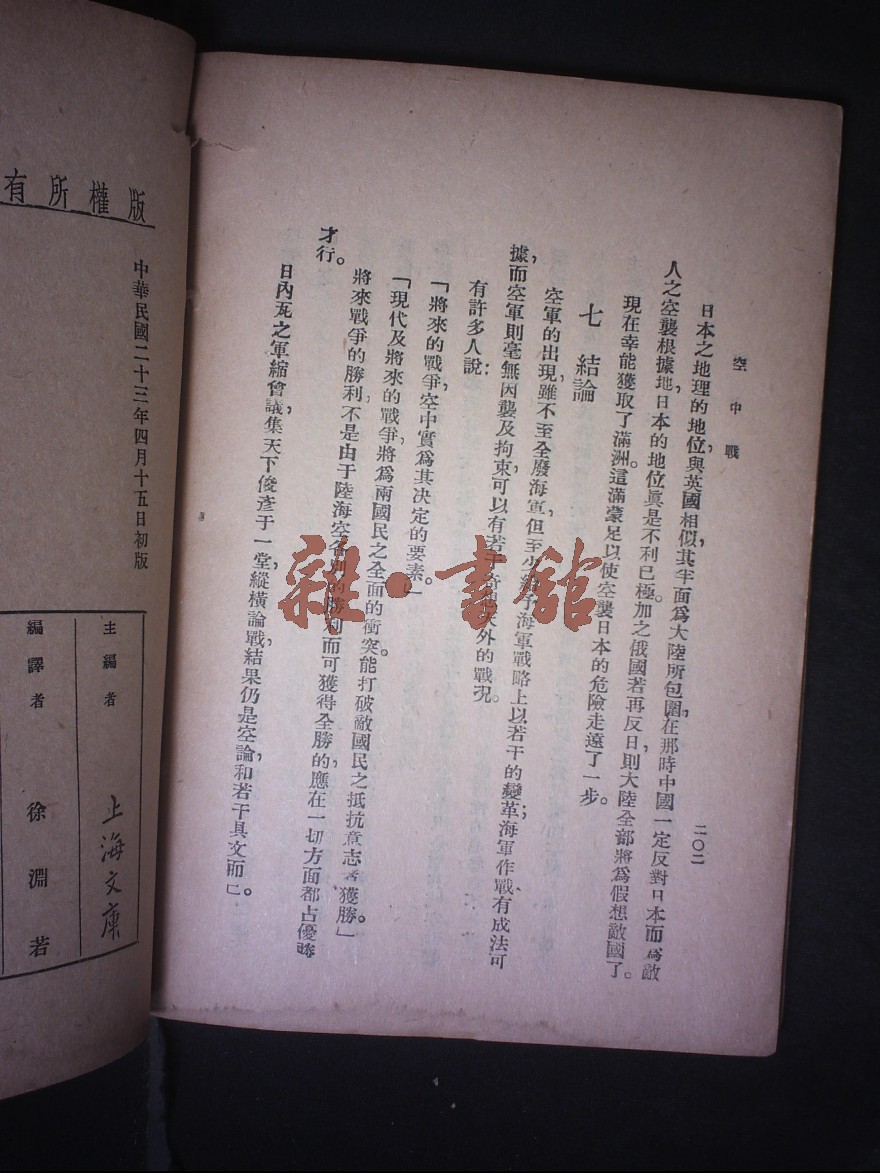 空中戰
二〇二
日本之地理的地位，與英國相似，其半面爲大陸所包圍，在那時中國一定反對日本而爲敵
人之空襲根據地，日本的地位眞是不利已極。加之俄國若再反日，則大陸全部將爲假想敵國了。
現在幸能獲取了滿洲，這滿蒙足以使空襲日本的危險走遠了一步。
七 結論
空軍的出現，雖不至全廢海軍，但至少給予海軍戰略上以若干的變革；海軍作戰有成法可
據，而空軍則毫無因襲及拘束，可以有若干奇想天外的戰况。
有許多人說：
「將來的戰爭，空中實爲其決定的要素。」
「現代及將來的戰爭，將爲兩國民之全面的衝突，能打破敵國民之抵抗意志者獲勝。」
將來戰爭的勝利，不是由于陸海空各別的勝利而可獲得全勝的，應在一切方面都占優勝
才行。
日內瓦之軍縮會議，集天下俊彥于一堂，縱橫論戰，結果仍是空論和若干具文而已。
版權所有
中華民國二十三年四月十五日初版
主編者 上海文庫
編譯者 徐淵若
雜·書館